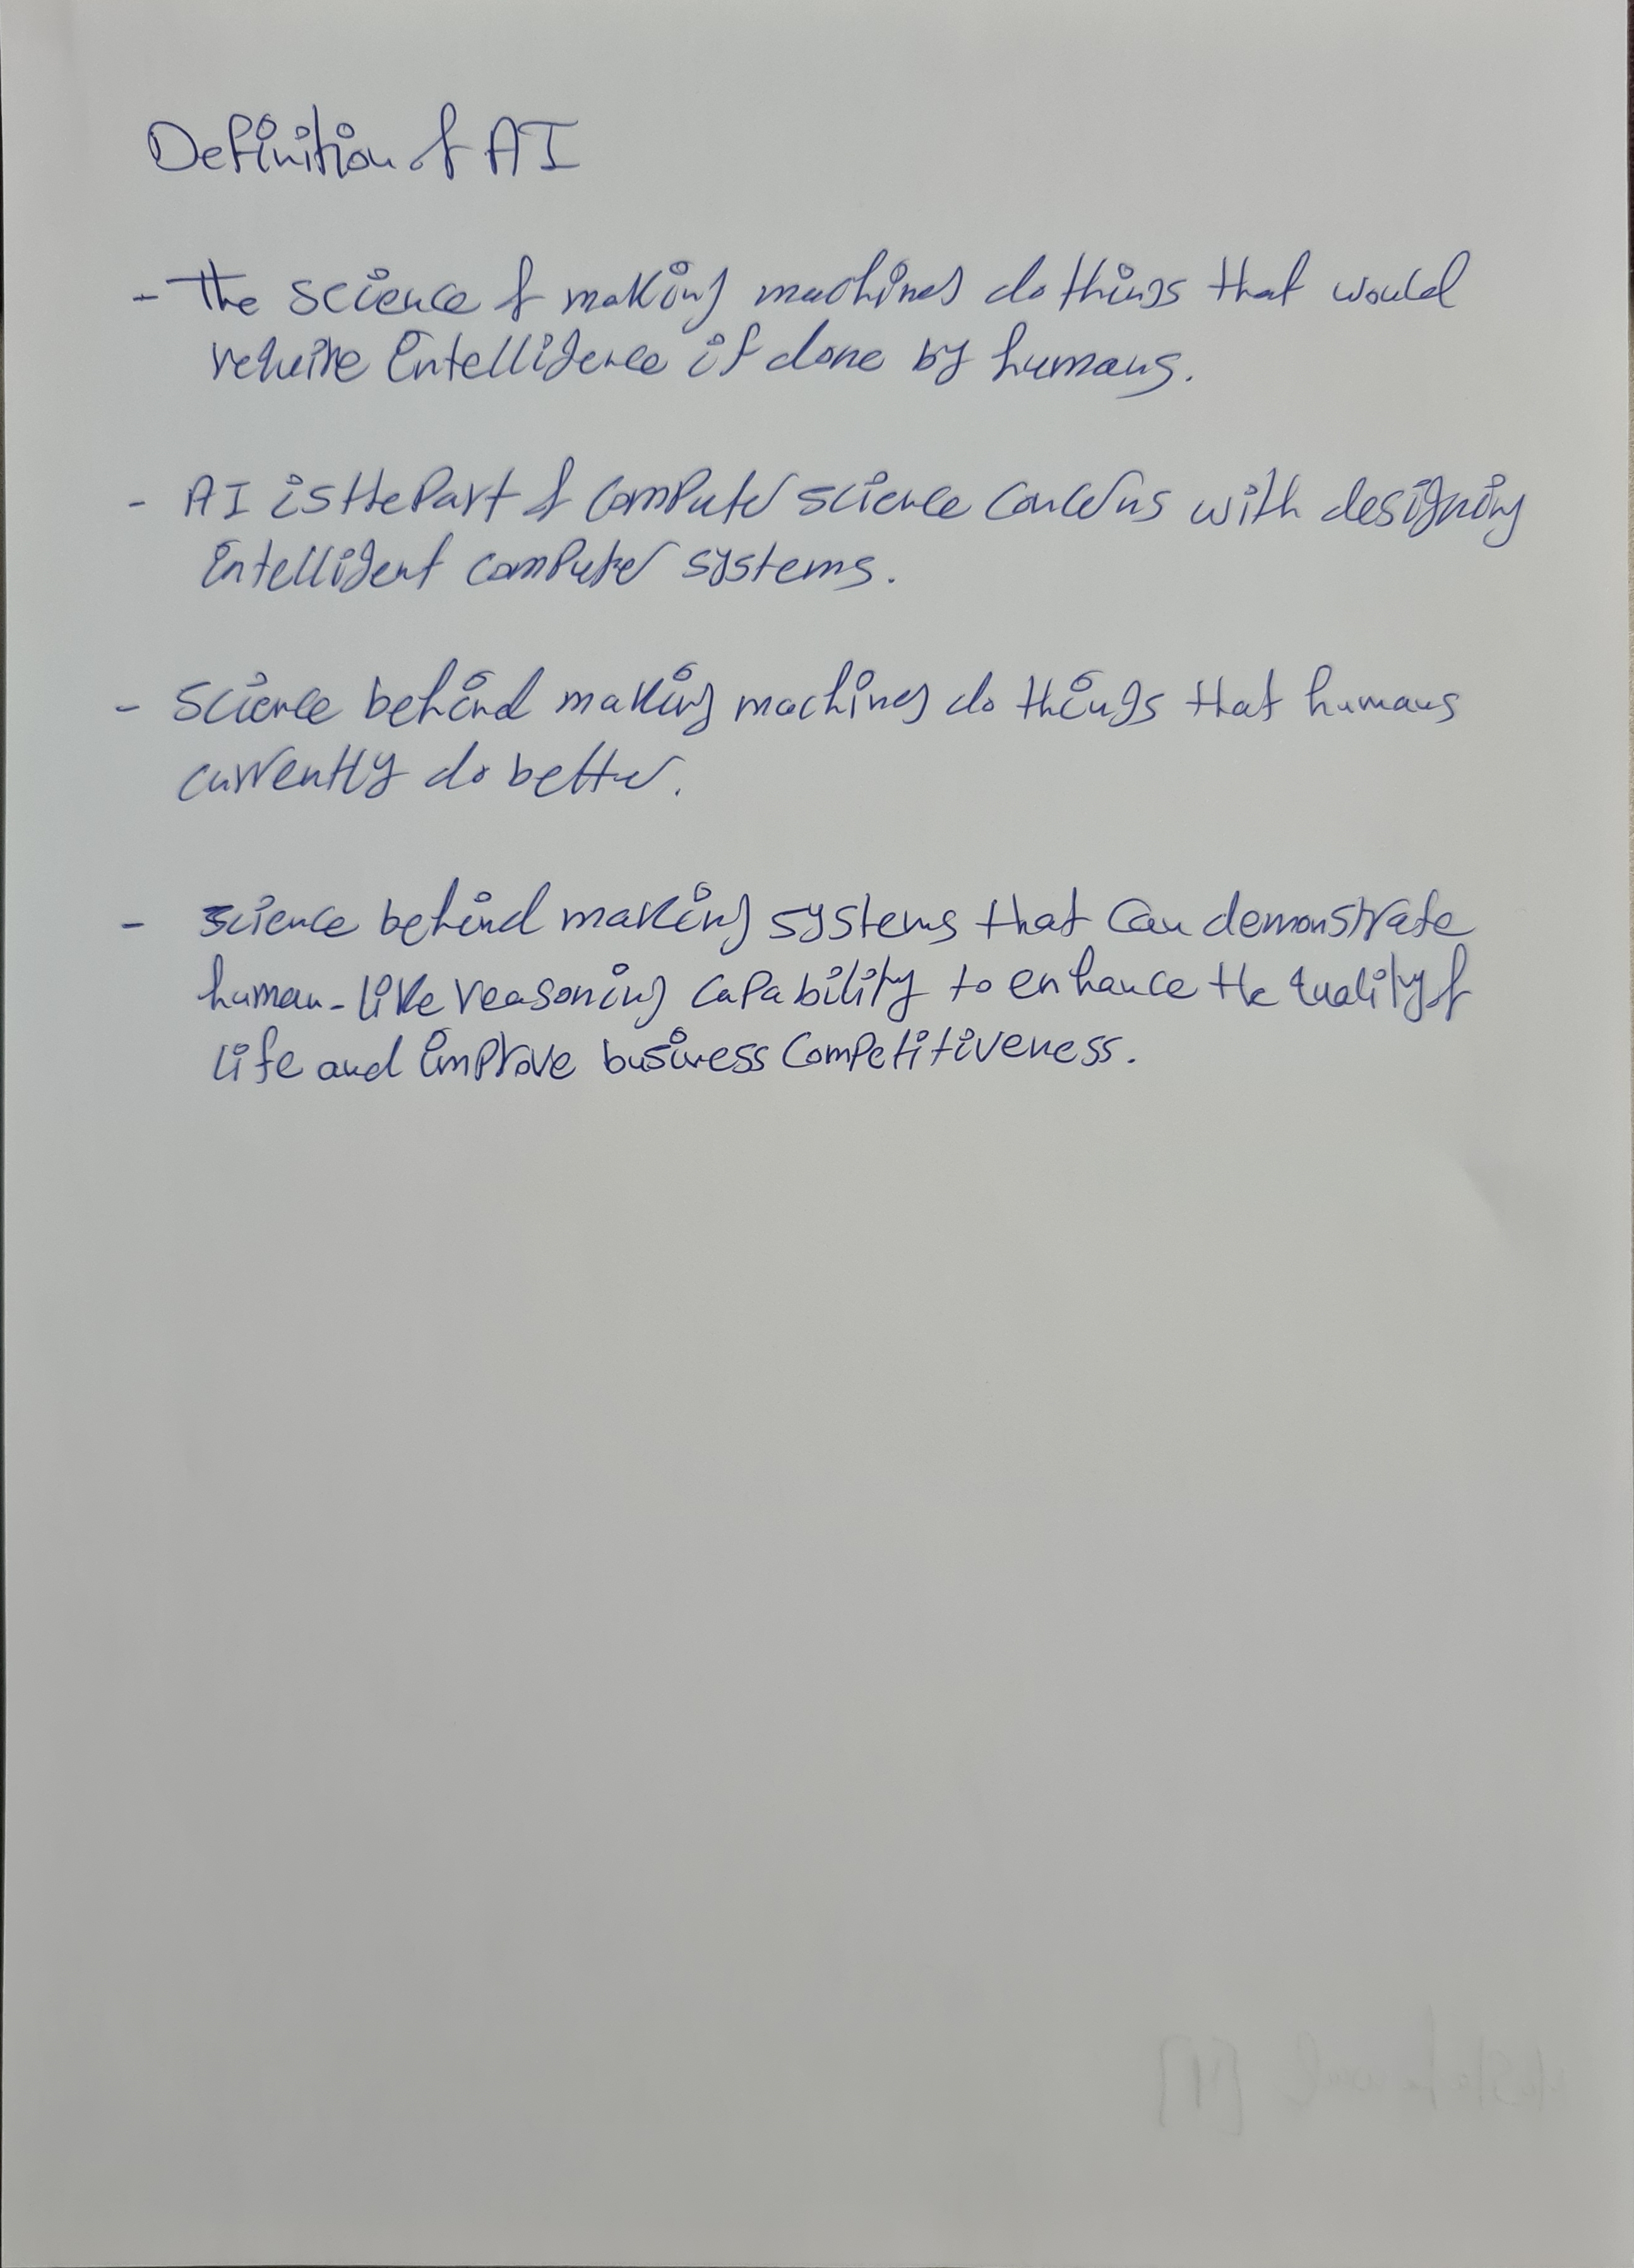 Definition of AI
- The science of making machines do things that would
require intelligence if done by humans.
- AI is the part of computer science concerns with designing
intelligent computer systems.
- Science behind making machines do things that humans
currently do better.
- science behind making systems that can demonstrate
human-like reasoning capability to enhance the quality of
life and improve business competitiveness.